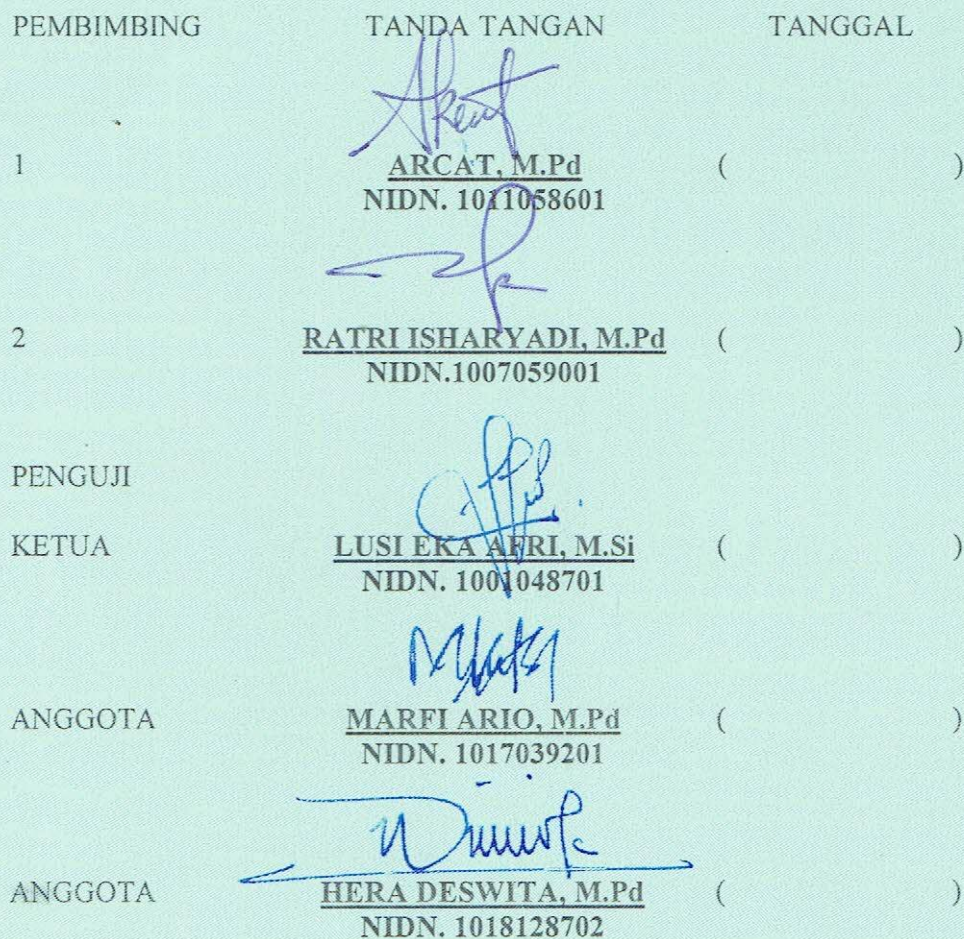 PEMBIMBING TANDA TANGAN TANGGAL
1 ARCAT, M.Pd ( )
NIDN. 1011058601
2 RATRI ISHARYADI, M.Pd ( )
NIDN.1007059001
PENGUJI
KETUA LUSI EKA AFRI, M.Si ( )
NIDN. 1001048701
ANGGOTA MARFI ARIO, M.Pd ( )
NIDN. 1017039201
ANGGOTA HERA DESWITA, M.Pd ( )
NIDN. 1018128702